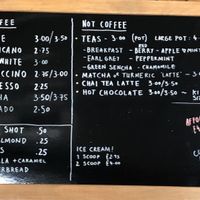 COFFEE
3.00/3.50
ICANO 2.75
WHITE 3.00
UCCINO 2.75/3.00
ESSO 2.25
HA 3.50/3.75
LADO 4.00
SHOT .50
ALMOND .25
S .25
LA + CARAMEL
ERBREAD
NOT COFFEE
TEAS - 3.00 (POT) LARGE POT: 4
- BREAKFAST - RED BERRY - APPLE & MINT
- EARL GREY - PEPPERMINT
- GREEN SENCHA - CHAMOMILE
MATCHA OR TURMERIC 'LATTE'
CHAI TEA LATTE 3.00/3.50
HOT CHOLATE 3.00/3.50
ICE CREAM!
1 SCOOP £2.75
2 SCOOP £4.00